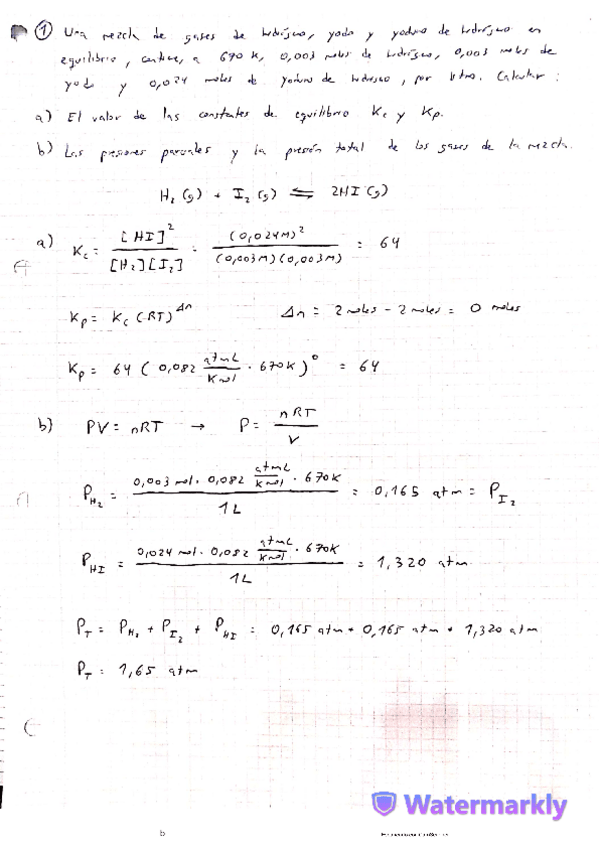 ① Una mezcla de gases de hidrógeno, yodo y yoduro de hidrógeno en
equilibrio, contiene, a 670 K, 0,003 moles de hidrógeno, 0,003 moles de
yodo y 0,024 moles de yoduro de hidrógeno, por litro. Calcular:
a) El valor de las constantes de equilibrio Kc y Kp.
b) Las presiones parciales y la presión total de los gases de la mezcla.
H₂(g) + I₂(g) ⇌ 2HI(g)
a) Kc = [HI]² / [H₂][I₂] = (0,024M)² / (0,003M)(0,003M) = 64
Kp = Kc (RT)^Δn Δn = 2 moles - 2 moles = 0 moles
Kp = 64 (0,082 atmL/Kmol · 670K)⁰ = 64
b) PV = nRT → P = nRT / V
P_H₂ = 0,003 mol · 0,082 atmL/Kmol · 670K / 1L = 0,165 atm = P_I₂
P_HI = 0,024 mol · 0,082 atmL/Kmol · 670K / 1L = 1,320 atm
P_T = P_H₂ + P_I₂ + P_HI = 0,165 atm + 0,165 atm + 1,320 atm
P_T = 1,65 atm
Watermarkly